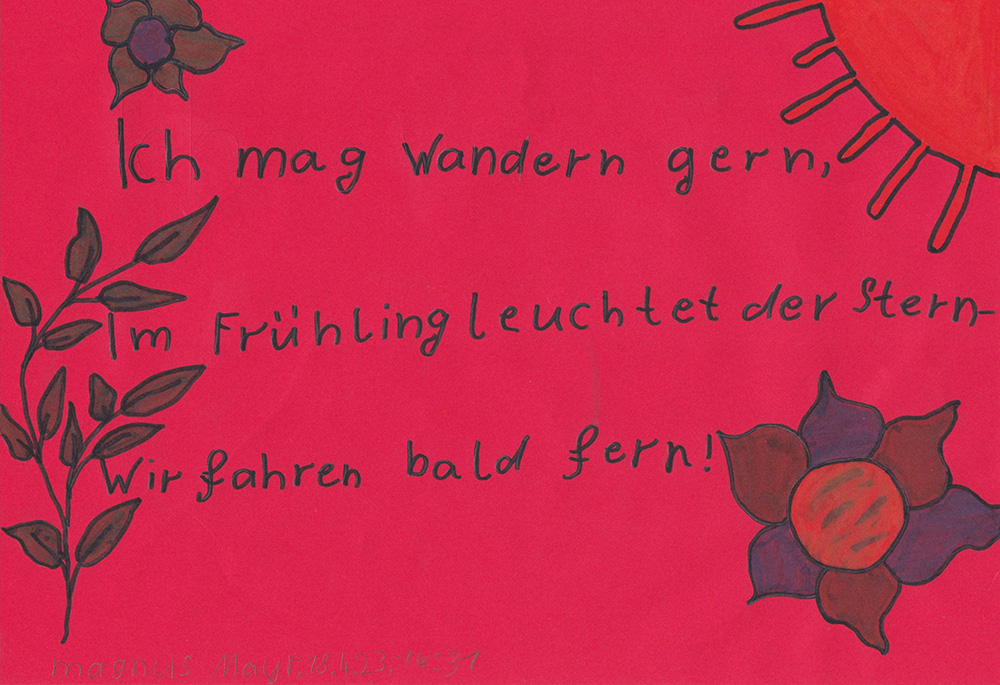 Ich mag Wandern gern,
Im Frühling leuchtet der Stern-
Wir fahren bald fern!
magnus Mayr, 18.4.23, 14:31